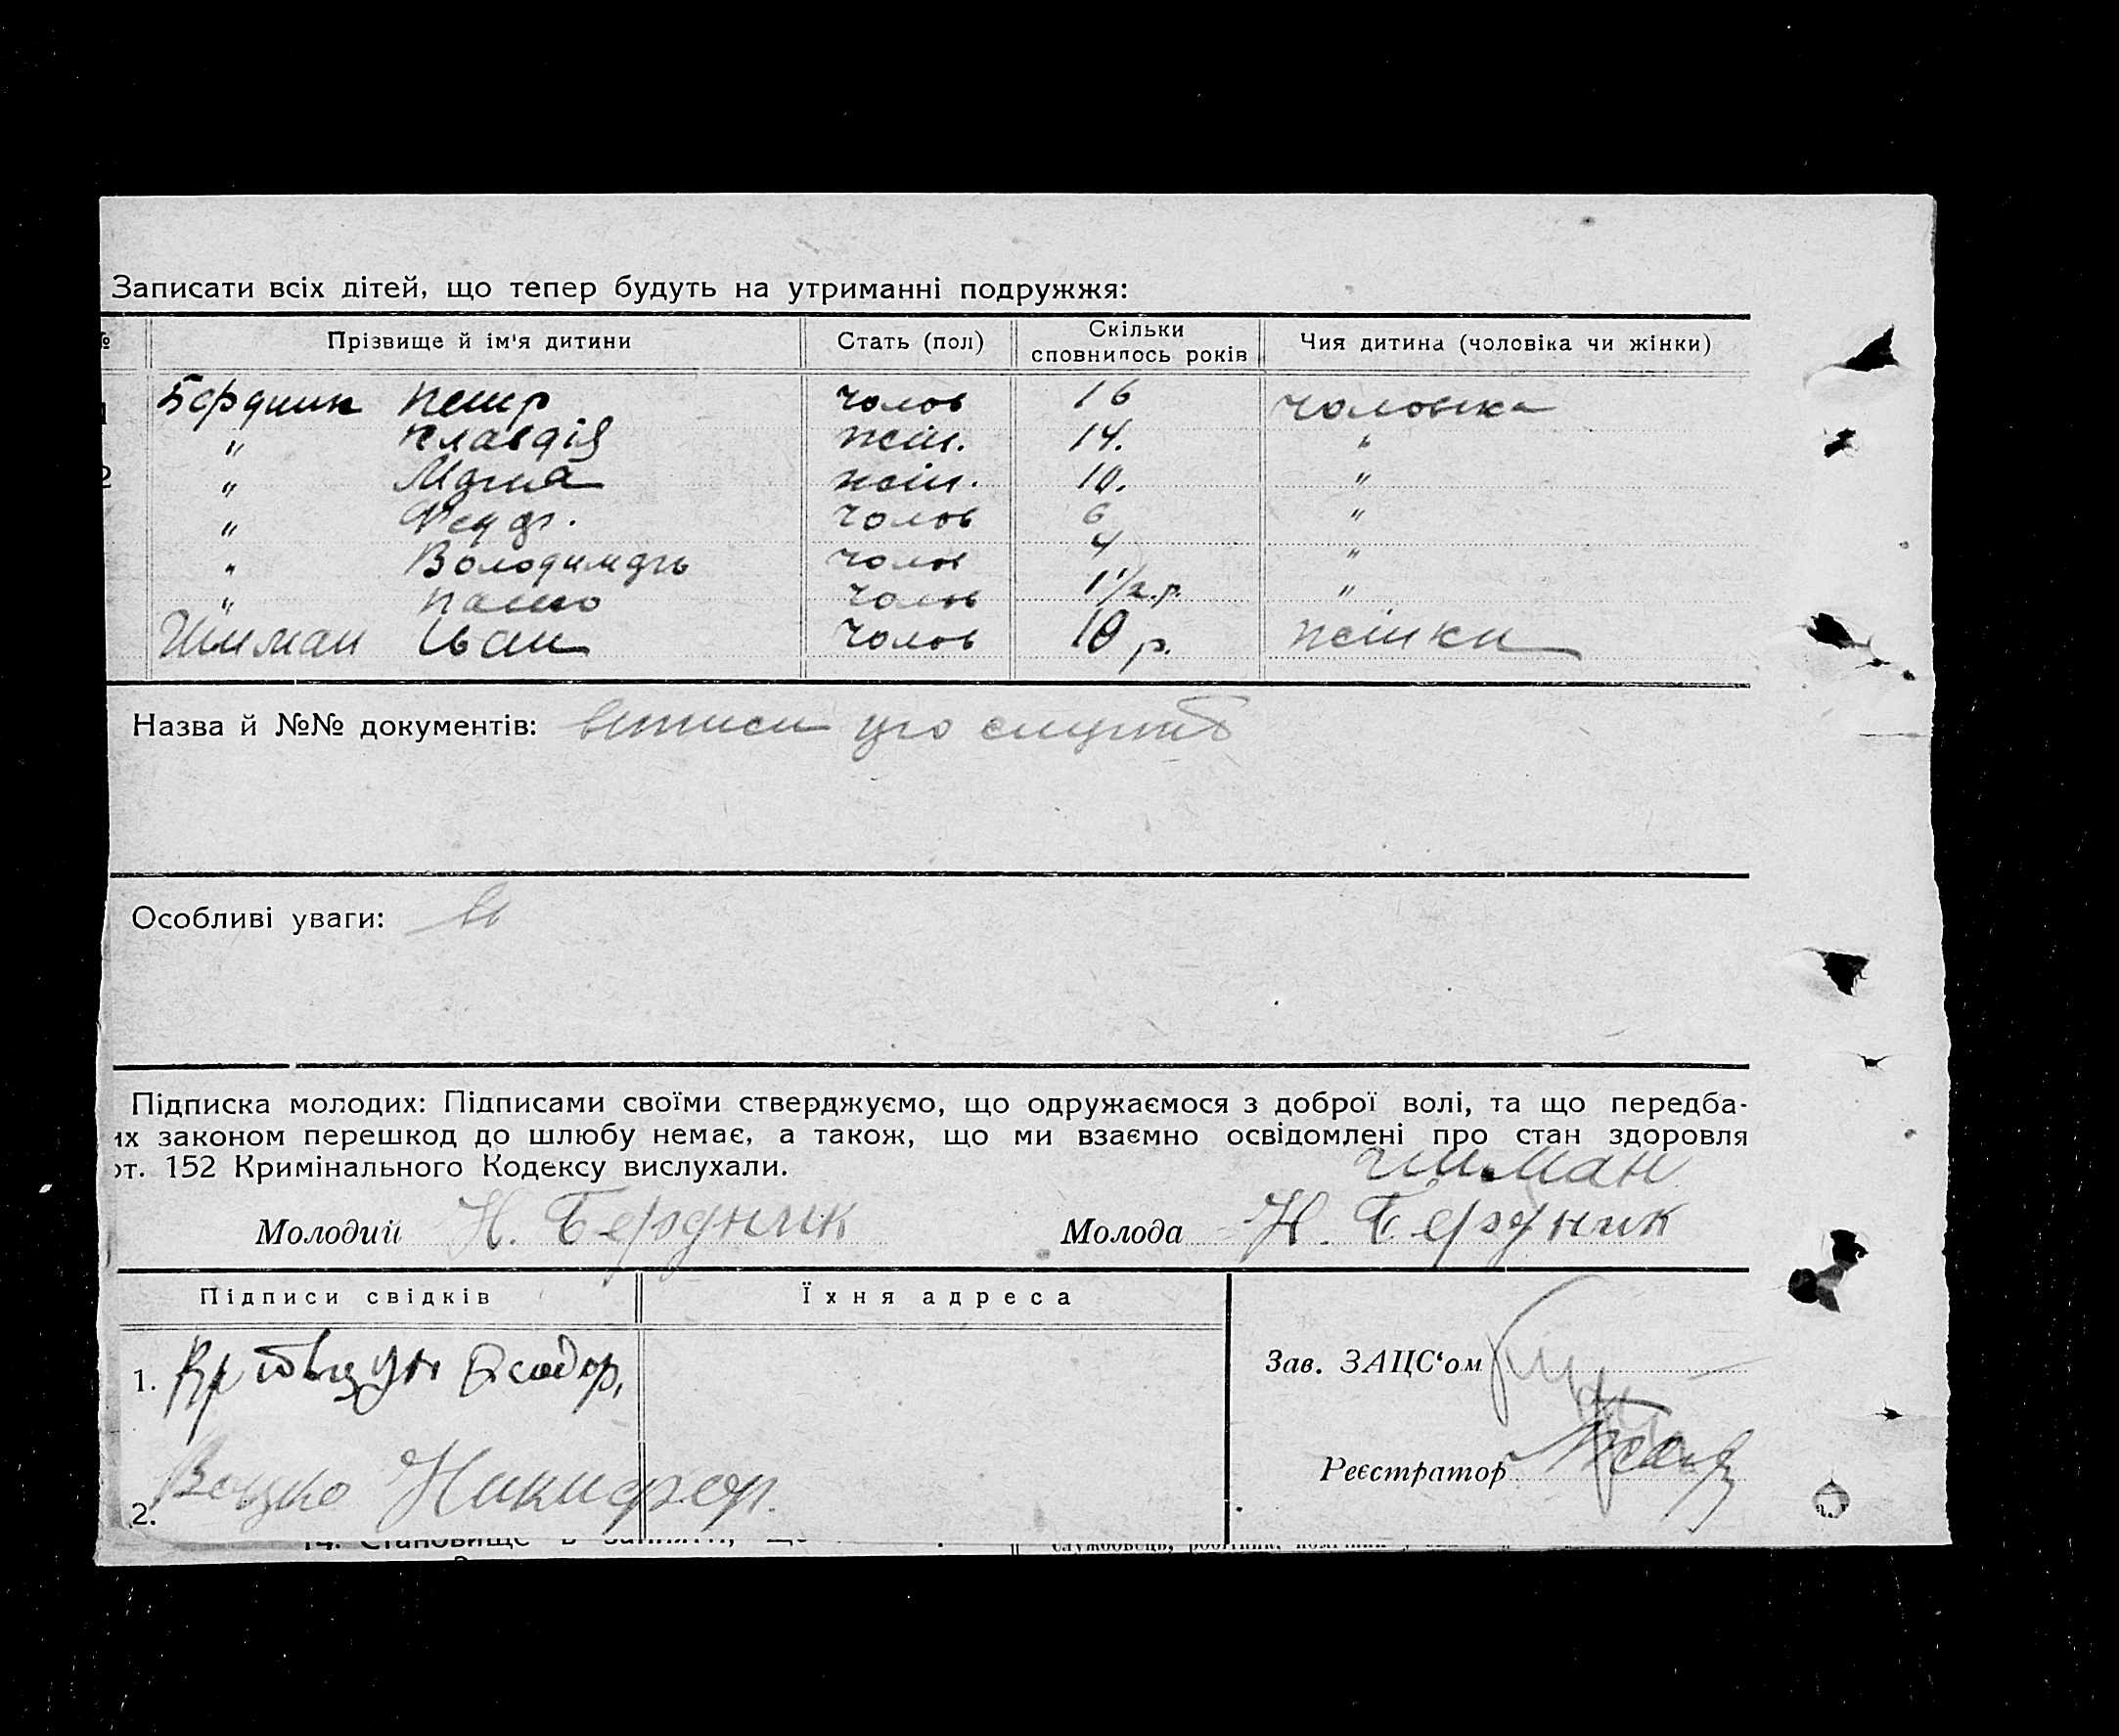 Записати всіх дітей, що тепер будуть на утриманні подружжя:
№ Прізвище й ім'я дитини Стать (пол) Скільки сповнилось років Чия дитина (чоловіка чи жінки)
1 Бердник Петр чолов 16 чоловіка
" Клавдія жін. 14. "
2 " Марія жін. 10. "
" Федор. чолов 6 "
" Володимирь чолов 4 "
" Павло чолов 1 1/2.р. "
Шиман Іван чолов 10 р. жінки
Назва й №№ документів: виписи
Особливі уваги:
Підписка молодих: Підписами своїми стверджуємо, що одружаємося з доброї волі, та що передба-
их законом перешкод до шлюбу немає, а також, що ми взаємно освідомлені про стан здоровля
от. 152 Кримінального Кодексу вислухали.
Шиман
Молодий Н. Бердник Молода Н. Бердник
Підписи свідків Їхня адреса
Зав. ЗАЦС'ом
1.
Реєстратор
2. Никифор.
14. Становище в занятті, що
службовець, робітник,